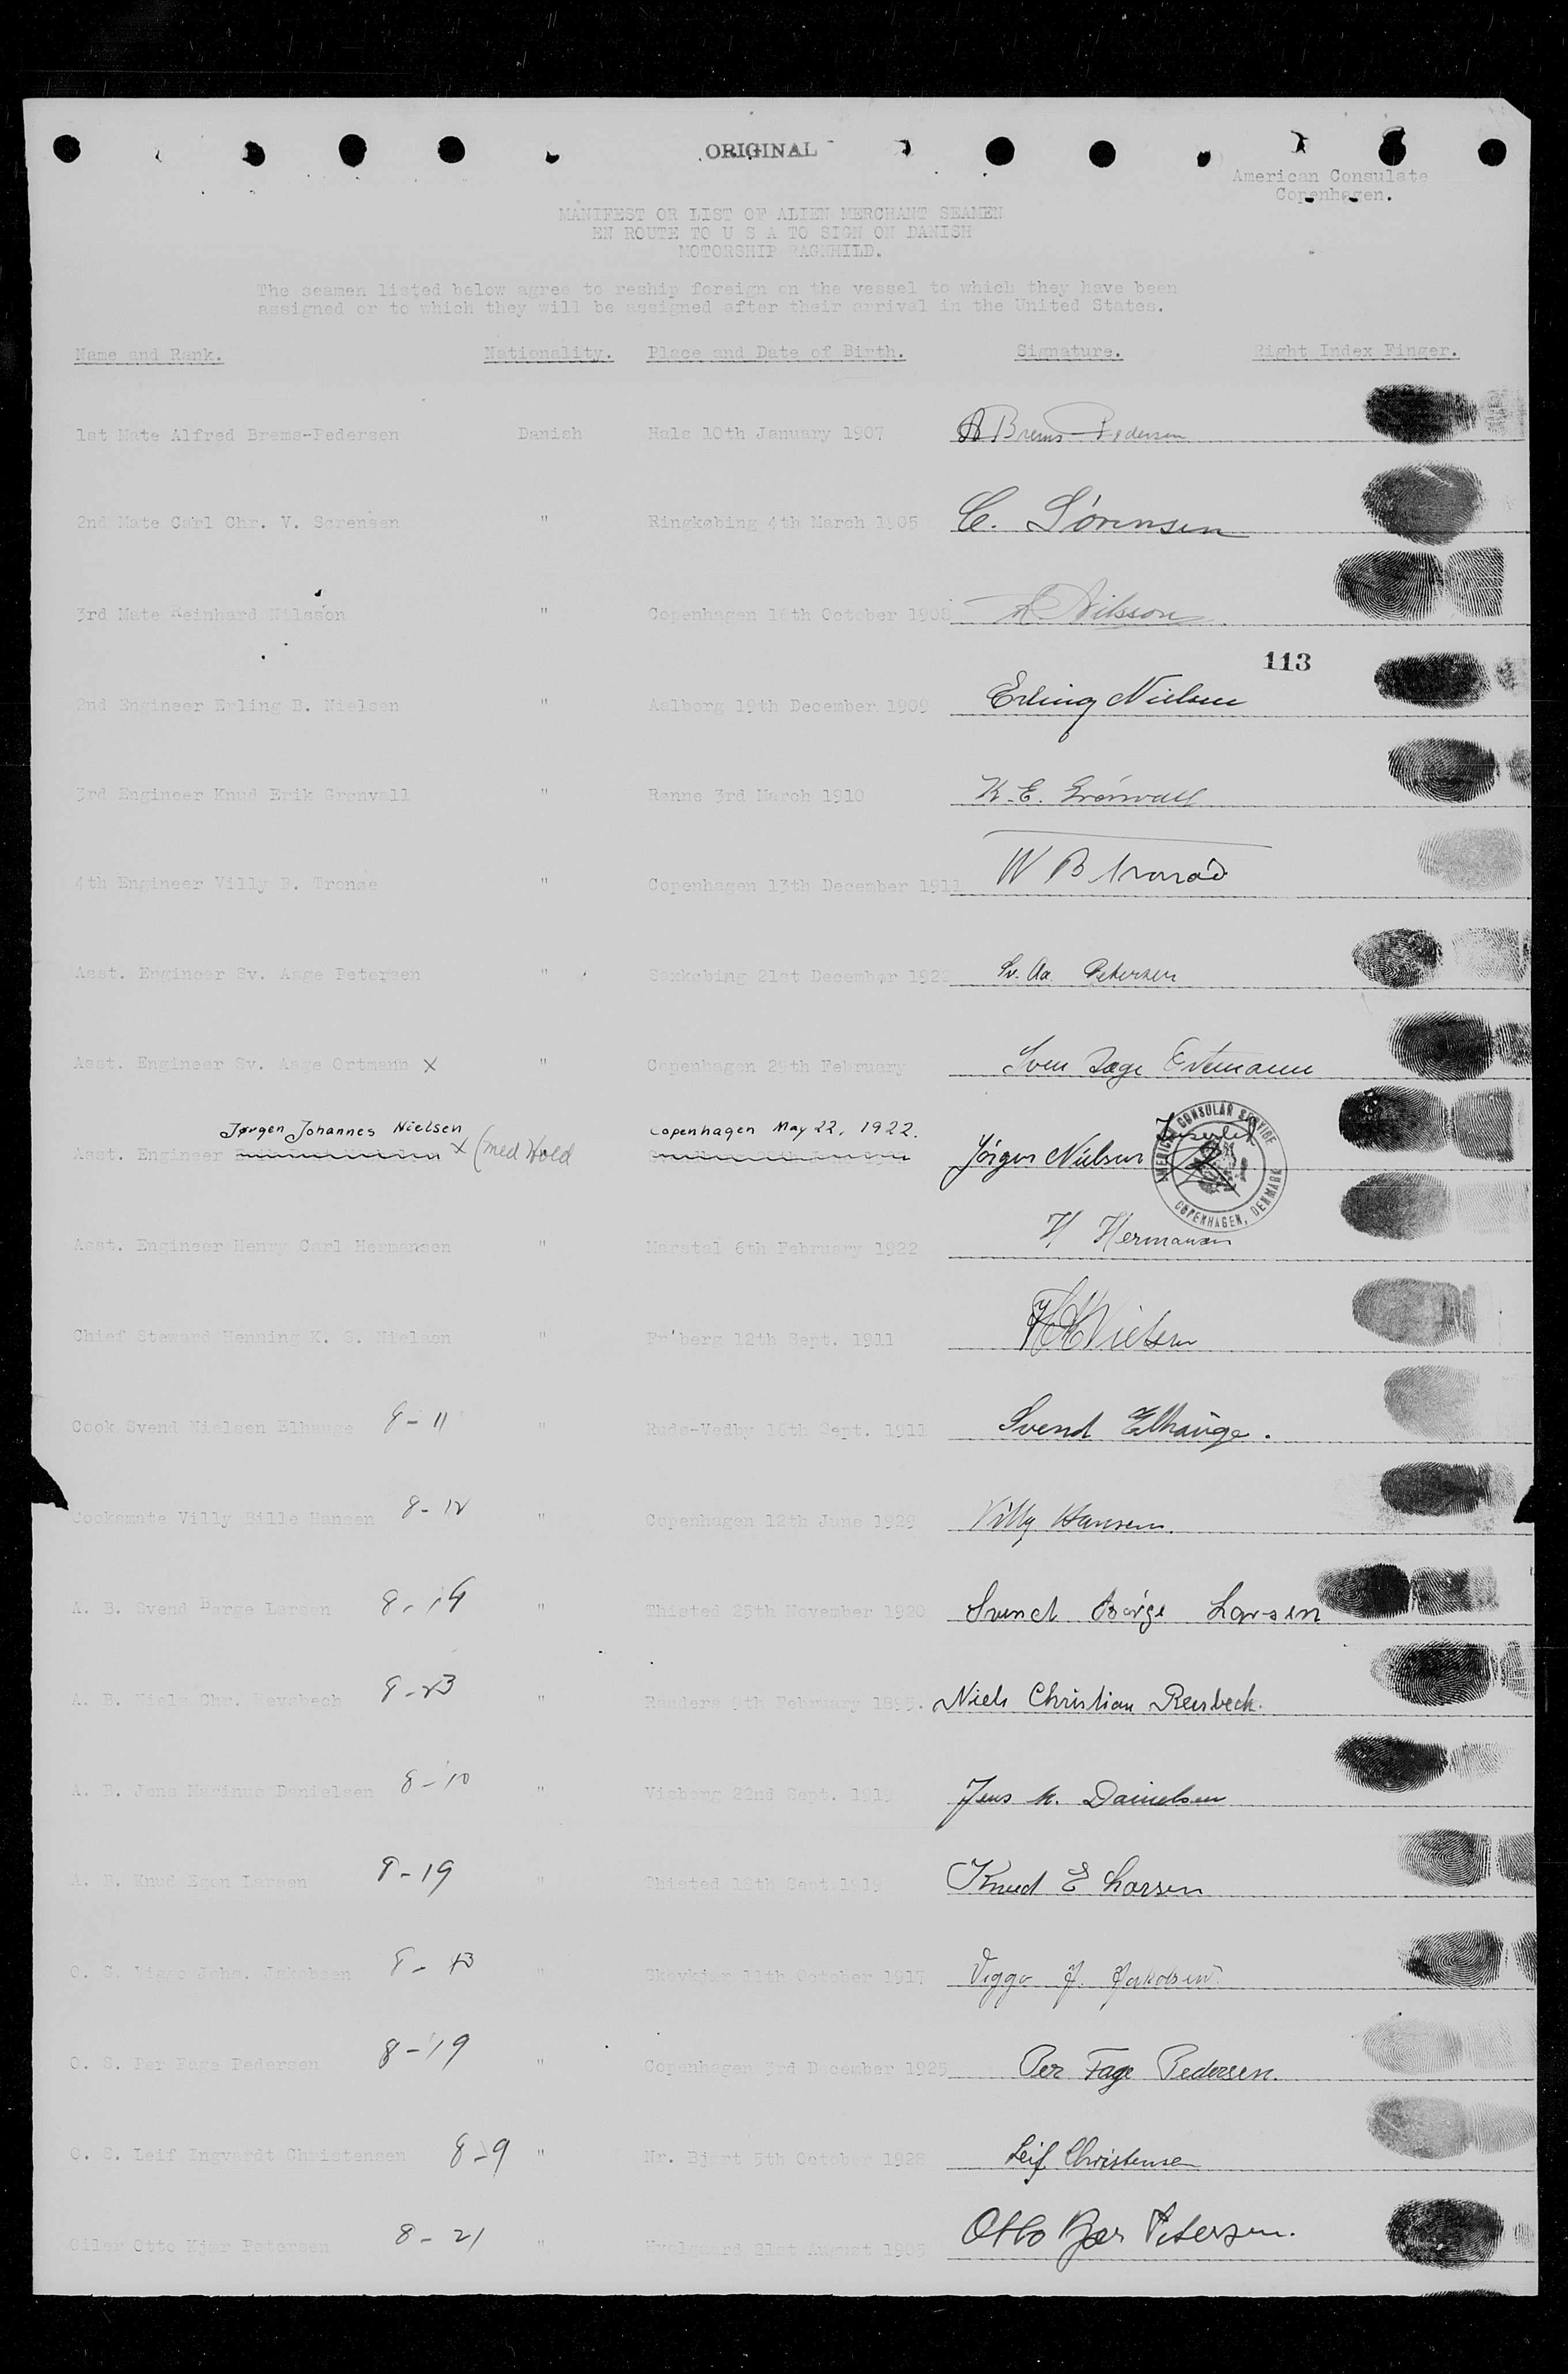 ORIGINAL
American Consulate
Copenhagen.
MANIFEST OR LIST OF ALIEN MERCHANT SEAMEN
EN ROUTE TO U S A TO SIGN ON DANISH
MOTORSHIP RAGNHILD.
The seamen listed below agree to reship foreign on the vessel to which they have been
assigned or to which they will be assigned after their arrival in the United States.
Name and Rank. Nationality. Place and Date of Birth. Signature. Right Index Finger.
1st Mate Alfred Brems-Pedersen Danish Hals 10th January 1907 A Brems-Pedersen
2nd Mate Carl Chr. V. Sørensen " Ringkøbing 4th March 1905 C. Sörensen
3rd Mate Reinhard Nilsson " Copenhagen 18th October 1908 R Nilsson
113
2nd Engineer Erling B. Nielsen " Aalborg 19th December 1909 Erling Nielsen
3rd Engineer Knud Erik Grønvall " Rønne 3rd March 1910 K. E. Grönvall
4th Engineer Villy B. Tronøe " Copenhagen 13th December 1911 W B
Asst. Engineer Sv. Aage Petersen " Saxkøbing 21st December 1922 Sv. Aa. Petersen
Asst. Engineer Sv. Aage Ortmann x " Copenhagen 29th February Sven Aage Ortmann
Jørgen Johannes Nielsen Copenhagen May 22, 1922.
Asst. Engineer x (med Hold Jörgen Nielsen
AMERICAN CONSULAR SERVICE COPENHAGEN, DENMARK
Asst. Engineer Henry Carl Hermansen " Marstal 6th February 1922 H Hermansen
Chief Steward Henning K. S. Nielsen " Fr'berg 12th Sept. 1911 Nielsen
Cook Svend Nielsen Elhauge 8-11 " Ruds-Vedby 16th Sept. 1911 Svend Elhauge.
Cooksmate Villy Bille Hansen 8-12 " Copenhagen 12th June 1929 Villy Hansen.
A. B. Svend Børge Larsen 8-19 " Thisted 25th November 1920 Svend Börge Larsen
A. B. Niels Chr. Revsbech 8-23 " Randers 9th February 1895. Niels Christian Revsbech.
A. B. Jens Marinus Danielsen 8-10 " Visborg 22nd Sept. 1919 Jens M. Danielsen
A. B. Knud Egon Larsen 8-19 " Thisted 18th Sept. 1919 Knud E Larsen
O. S. Viggo Johs. Jakobsen " Skovkjær 11th October 1917 Viggo J. Jakobsen
O. S. Per Fage Pedersen 8-19 " Copenhagen 3rd December 1925 Per Fage Pedersen.
O. S. Leif Ingvardt Christensen 8-9 " Nr. Bjert 5th October 1928 Leif Christensen
Oiler Otto Kjær Petersen 8-21 " 21st August 1905 Otto Kjær Petersen.